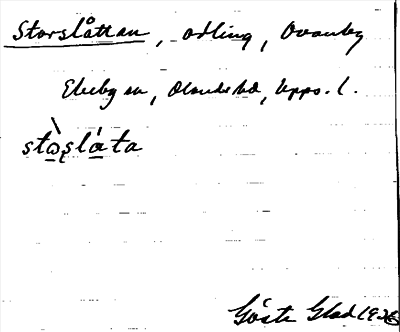 Storslåttan, odling, Ovanby
Ekeby sn, Olands hd, Upps. l.
stɷ̀ʂláta
Gösta Glad 1926